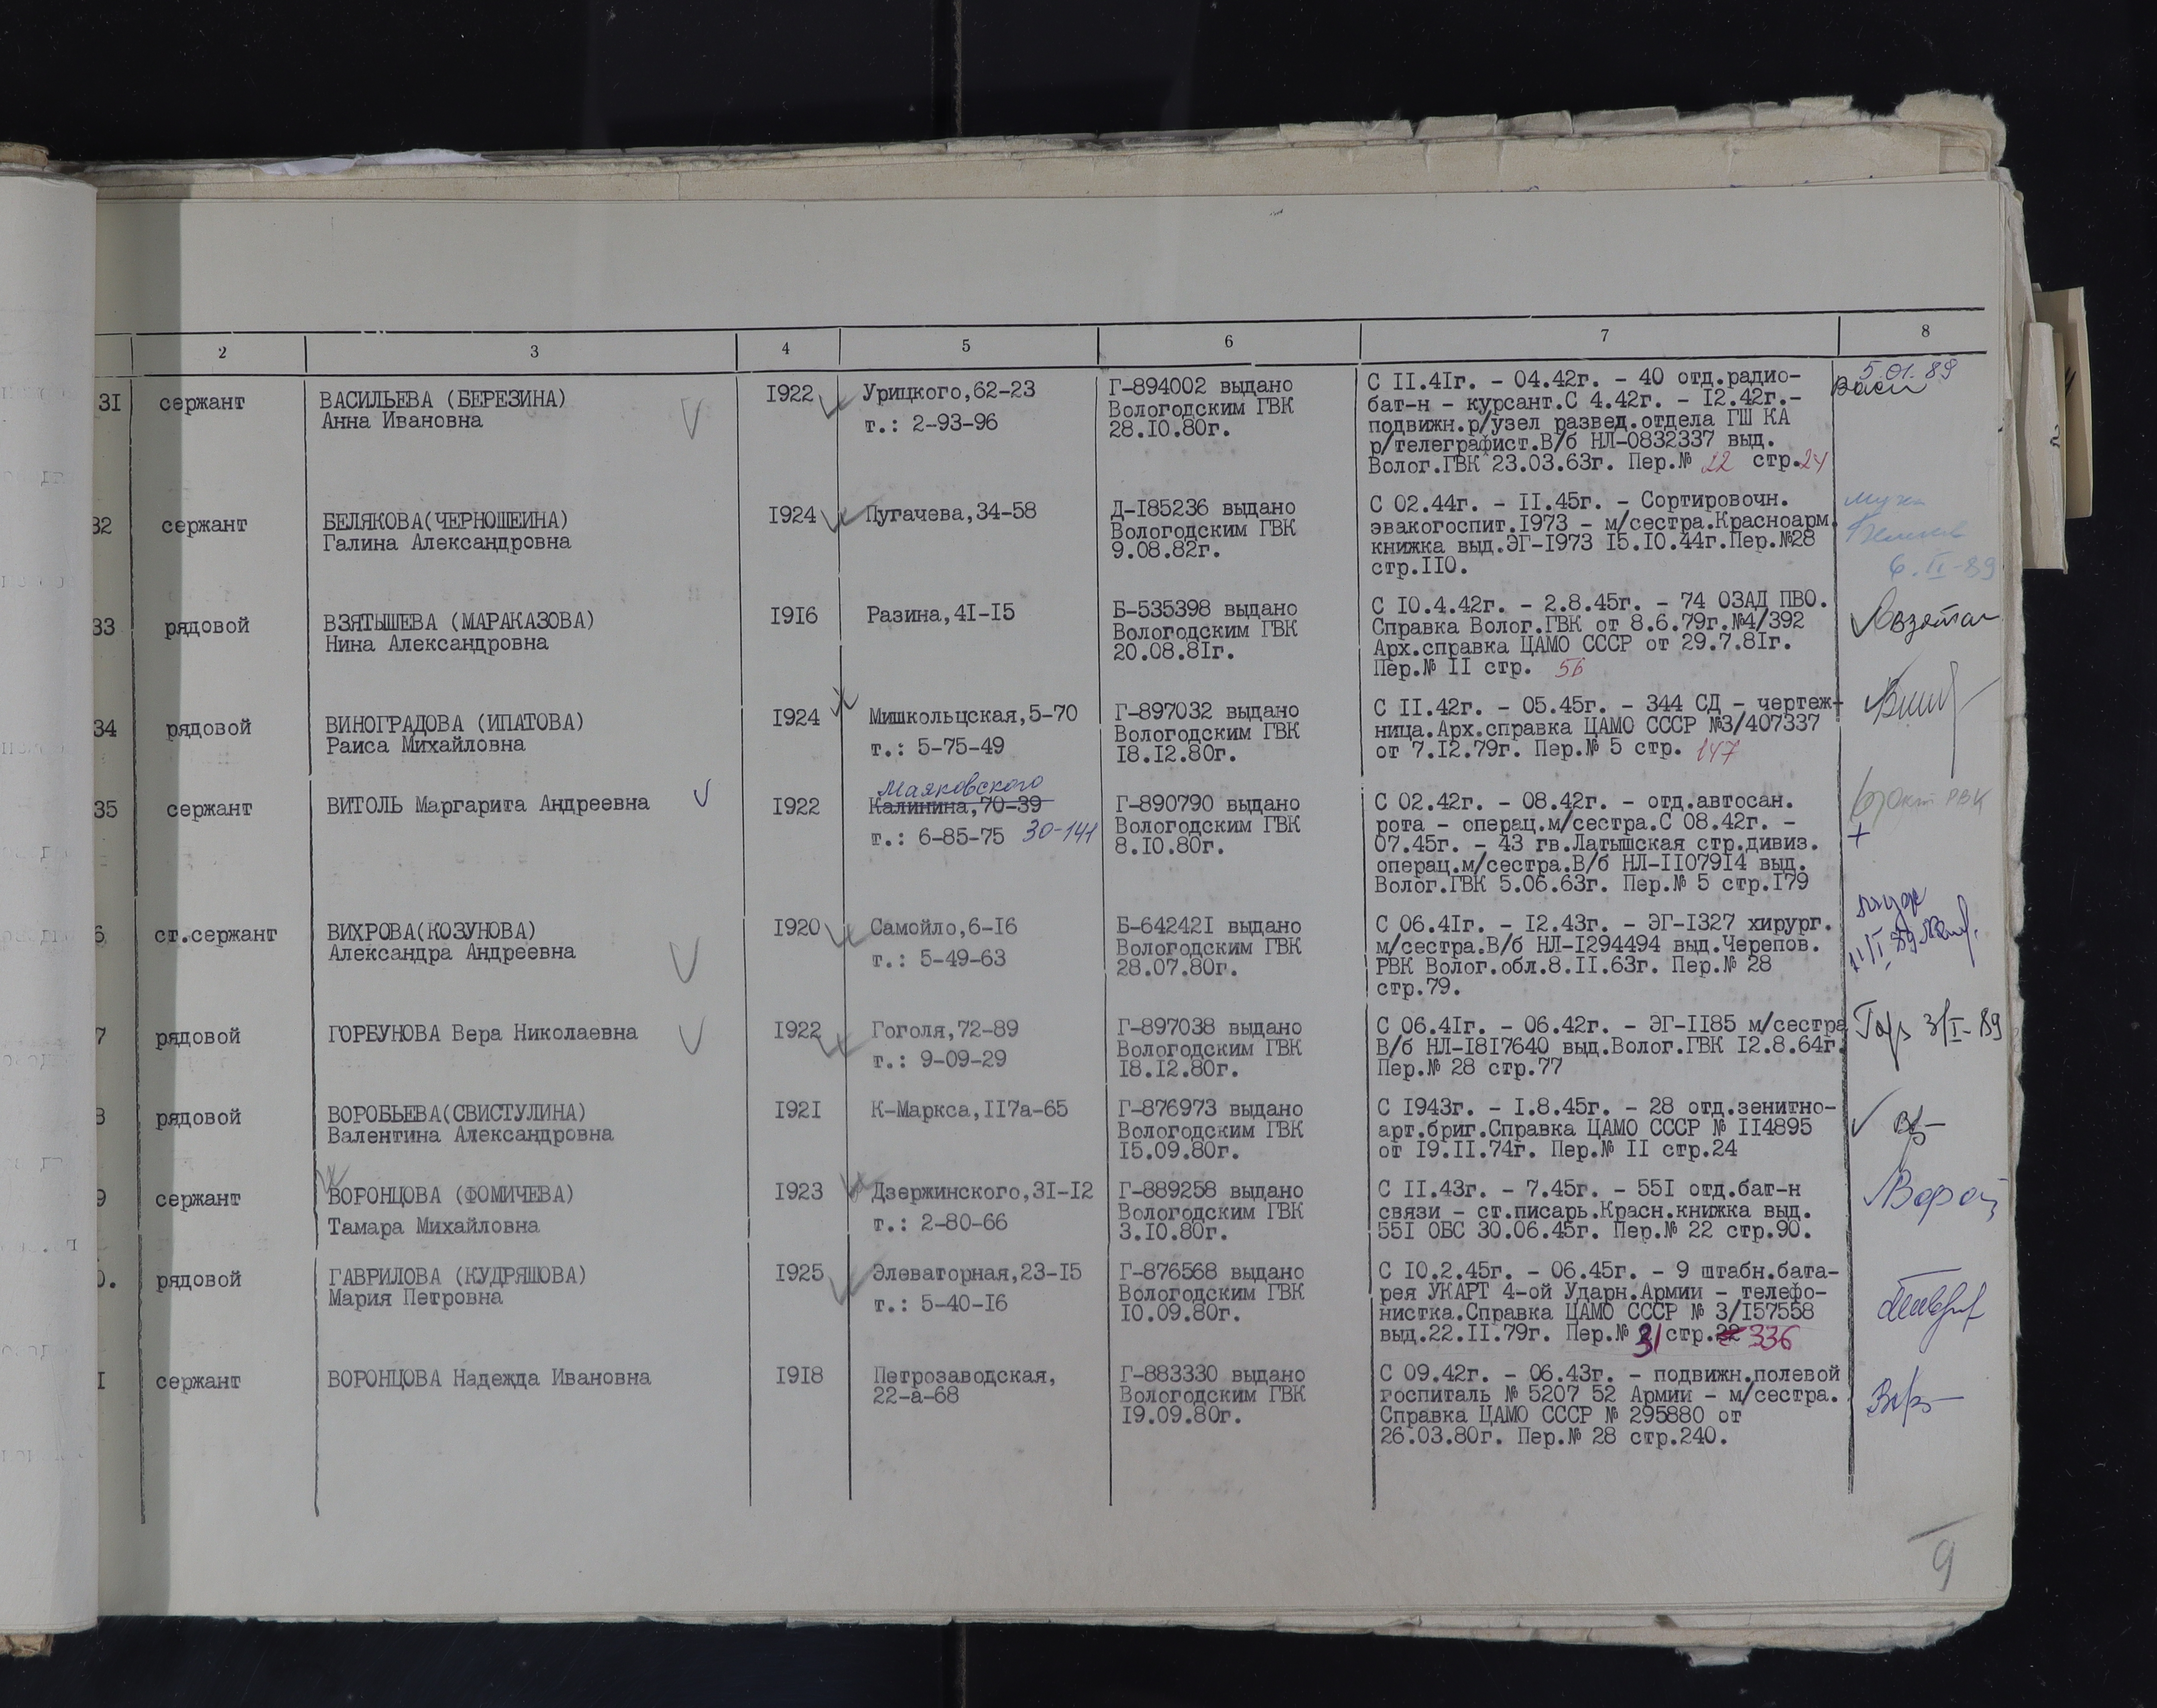 2 3 4 5 6 7 8
31 сержант ВАСИЛЬЕВА (БЕРЕЗИНА)
Анна Ивановна
1922
Урицкого,62-23
т.: 2-93-96
Г-894002 выдано
Вологодским ГВК
28.10.80г.
С II.41г. - 04.42г. - 40 отд.радио-
бат-н - курсант.С 4.42г. - 12.42г.-
подвижн.р/узел развед.отдела ГШ КА
р/телеграфист.В/б НЛ-0832337 выд.
Волог.ГВК 23.03.63г. Пер.№ 22 стр.24
5.01.89
Васи
32 сержант БЕЛЯКОВА(ЧЕРНОШЕИНА)
Галина Александровна
1924
Пугачева,34-58
Д-185236 выдано
Вологодским ГВК
9.08.82г.
С 02.44г. - II.45г. - Сортировочн.
эвакогоспит.1973 - м/сестра.Красноарм.
книжка выд.ЭГ-1973 15.10.44г.Пер.№28
стр.110.
6.II-89
33 рядовой ВЗЯТЫШЕВА (МАРАКАЗОВА)
Нина Александровна
1916
Разина,41-15
Б-535398 выдано
Вологодским ГВК
20.08.81г.
С 10.4.42г. - 2.8.45г. - 74 ОЗАД ПВО.
Справка Волог.ГВК от 8.6.79г.№4/392
Арх.справка ЦАМО СССР от 29.7.81г.
Пер.№ II стр. 56
34 рядовой ВИНОГРАДОВА (ИПАТОВА)
Раиса Михайловна
1924
Мишкольцская,5-70
т.: 5-75-49
Г-897032 выдано
Вологодским ГВК
18.12.80г.
С II.42г. - 05.45г. - 344 СД - чертеж-
ница.Арх.справка ЦАМО СССР №3/407337
от 7.12.79г. Пер.№ 5 стр. 147
35 сержант ВИТОЛЬ Маргарита Андреевна
1922
Маяковского
Калинина,70-39
т.: 6-85-75 30-141
Г-890790 выдано
Вологодским ГВК
8.10.80г.
С 02.42г. - 08.42г. - отд.автосан.
рота - операц.м/сестра.С 08.42г. -
07.45г. - 43 гв.Латышская стр.дивиз.
операц.м/сестра.В/б НЛ-1107914 выд.
Волог.ГВК 5.06.63г. Пер.№ 5 стр.179
Окт РВК
+
6 ст.сержант ВИХРОВА(КОЗУНОВА)
Александра Андреевна
1920
Самойло,6-16
т.: 5-49-63
Б-642421 выдано
Вологодским ГВК
28.07.80г.
С 06.41г. - 12.43г. - ЭГ-1327 хирург.
м/сестра.В/б НЛ-1294494 выд.Черепов.
РВК Волог.обл.8.II.63г. Пер.№ 28
стр.79.
11/I 89
7 рядовой ГОРБУНОВА Вера Николаевна
1922
Гоголя,72-89
т.: 9-09-29
Г-897038 выдано
Вологодским ГВК
18.12.80г.
С 06.41г. - 06.42г. - ЭГ-1185 м/сестра
В/б НЛ-1817640 выд.Волог.ГВК 12.8.64г.
Пер.№ 28 стр.77
Гор 3/I-89
8 рядовой ВОРОБЬЕВА(СВИСТУЛИНА)
Валентина Александровна
1921
К-Маркса,117а-65
Г-876973 выдано
Вологодским ГВК
15.09.80г.
С 1943г. - 1.8.45г. - 28 отд.зенитно-
арт.бриг.Справка ЦАМО СССР № 114895
от 19.II.74г. Пер.№ II стр.24
9 сержант ВОРОНЦОВА (ФОМИЧЕВА)
Тамара Михайловна
1923
Дзержинского,31-12
т.: 2-80-66
Г-889258 выдано
Вологодским ГВК
3.10.80г.
С II.43г. - 7.45г. - 551 отд.бат-н
связи - ст.писарь.Красн.книжка выд.
551 ОБС 30.06.45г. Пер.№ 22 стр.90.
0. рядовой ГАВРИЛОВА (КУДРЯШОВА)
Мария Петровна
1925
Элеваторная,23-15
т.: 5-40-16
Г-876568 выдано
Вологодским ГВК
10.09.80г.
С 10.2.45г. - 06.45г. - 9 штабн.бата-
рея УКАРТ 4-ой Ударн.Армии - телефо-
нистка.Справка ЦАМО СССР № 3/157558
выд.22.II.79г. Пер.№ 31 стр.22 336
I сержант ВОРОНЦОВА Надежда Ивановна
1918
Петрозаводская,
22-а-68
Г-883330 выдано
Вологодским ГВК
19.09.80г.
С 09.42г. - 06.43г. - подвижн.полевой
госпиталь № 5207 52 Армии - м/сестра.
Справка ЦАМО СССР № 295880 от
26.03.80г. Пер.№ 28 стр.240.
9